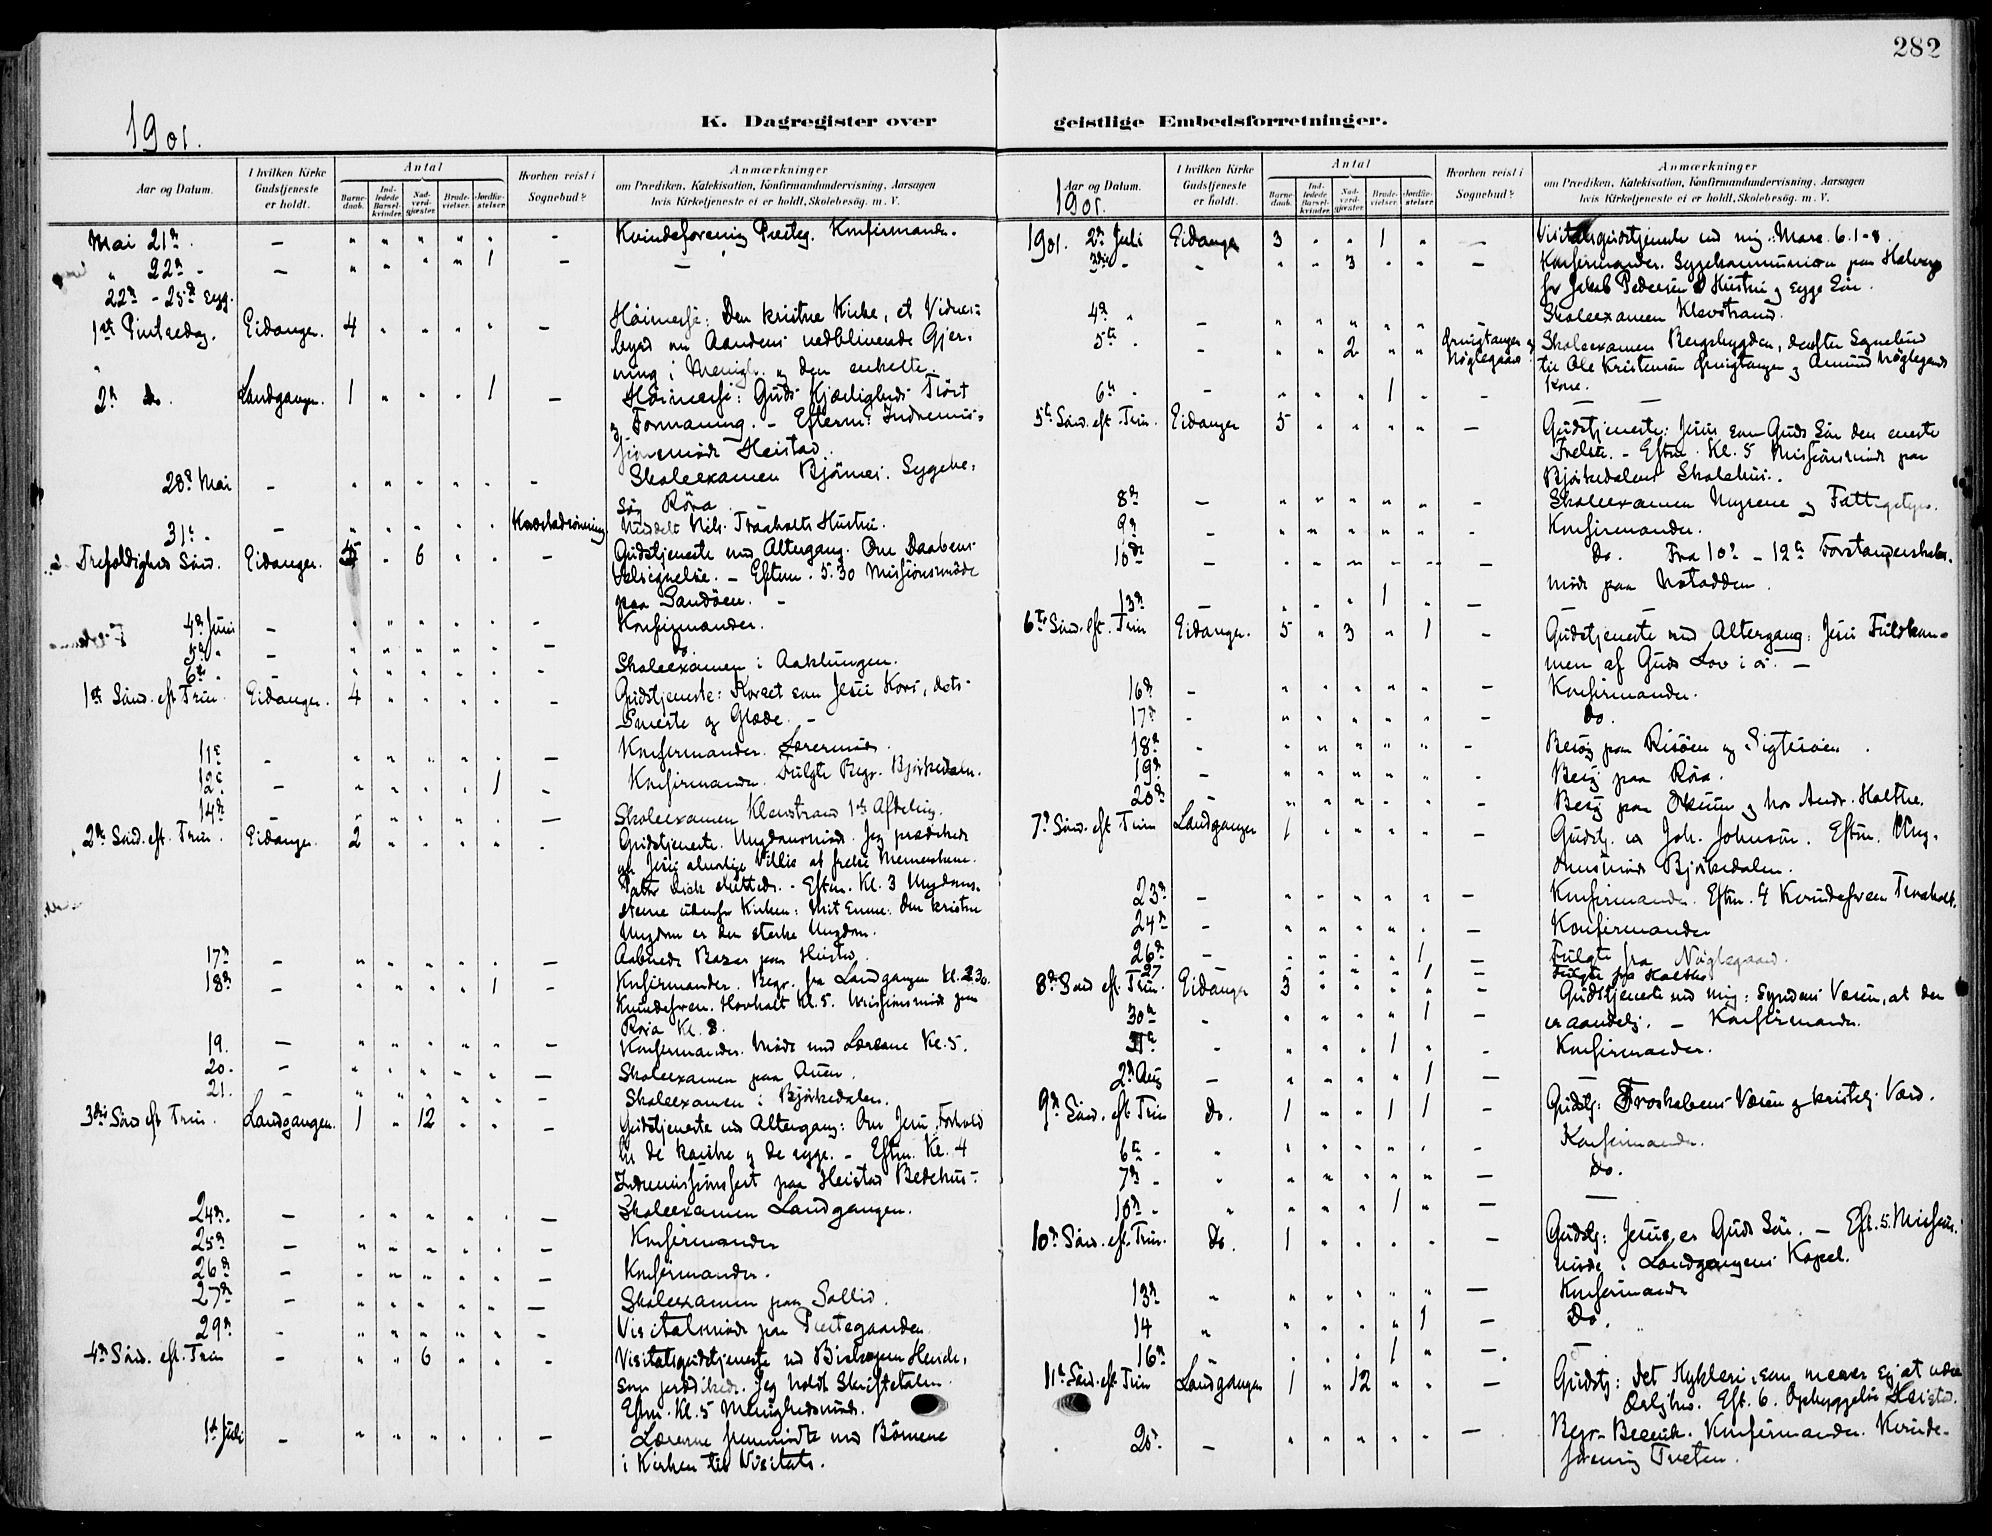 282
1901.
K. Dagregister over
Aar og Datum.
I hvilken Kirke Gudstjeneste er holdt.
Antal
Barnedaab.
Indledede Barselkvinder.
Nadverdgjæster.
Brudevielser.
Jordfæstelser.
Hvorhen reist i Sognebud?
Anmærkninger
om Prædiken, Katekisation, Konfirmandundervisning, Aarsagen
hvis Kirketjeneste ei er holdt, Skolebesøg. m. V.
Mai 21de - " " " " " - Kvindeforening Præsteg. Konfirmander.
" 22de - - " " " " 1 - -
22de - 25de syg.
1ste Pintsedag. Eidanger. 4 " " " " - Höimesse: Den kristne Kirke, et Vidnes-
byrd om Aandens vedblivende Gjer-
ning i Menigh. og den enkelte.
2den do. Landgangen. 1 " " " 1 - Höimesse: Guds Kjærligheds Tröst
og Formaning. - Efterm. Indremis-
sionsmöde Heistad.
28de Mai - " " " " " - Skoleexamen Björnes. Sygebe-
søg Röra.
31te - - " " " " " Nils Traaholts Hustru.
Trefoldigheds Sönd. Eidanger. 5 " 6 " " - Gudstjeneste med Altergang. Om Daabens
Velsignelse. - Efterm. 5.30 Missionsmöde
paa Sandöen. -
4de Juni - " " " " " - Konfirmander.
5te " - " " " " " - do
6te " - " " " " " - Skoleexamen i Aaklungen.
1ste Sönd. eft. Trin. Eidanger. 4 " " " " - Gudstjeneste: Korset som Jesu Kors, dets
Smerte og Glæde. -
11te - " " " " " - Konfirmander. Lærermöde.
12te - " " " " 1 - Konfirmander. Fulgte Begr. Björkedalen.
14de - " " " " " - Skoleexamen Klevstrand 1ste Afdeling.
2den Sönd. eft. Trin. Eidanger. 2 " " " " " Gudstjeneste. Ungdomsmöde. Jeg prædikede
om Jesu alvorlige Villie at frelse Menneskene.
Pastor Dick sluttede. - Eftm. Kl. 3 Ungdoms-
stevne udenfor Kirken: Mit Emne: Den kristne
Ungdom er den sterke Ungdom.
17de - " " " " " - Aabnede Bazar paa Heistad.
18de - " " " " 1 - Konfirmander. Begr. fra Landgangen Kl. 2 30.
Kvindeforen. Hovholt Kl. 5. Missionsmöde paa
Röra Kl. 8.
19. - " " " " " - Konfirmander. Möde med Lærerne Kl. 5.
20. - " " " " " - Skoleexamen paa Auen.
21. - " " " " " - Skoleexamen i Björkedalen.
3die Sönd. eft. Trin. Landgangen. 1 " 12 " " - Gudstjeneste med Altergang: Om Jesu Forhold
til de karske og de syge. - Eftm. Kl. 4
Indremissionsfest paa Heistad Bedehus.-
24de. - " " " " " - Skoleexamen Landgangen.
25de - " " " " " - Konfirmander
26de - " " " " " - Konfirmander.
27de - " " " " " - Skoleexamen paa Sollid.
29de - " " " " " - Visitatsmöde paa Præstegaarden.
4de Sönd. eft. Trin - " " 6 " " - Visitatsgudstjeneste ved Biskopen Heuch,
som prædikede. Jeg holdt Skriftetalen.
Eftm. Kl. 5 Menighedsmöde.
1ste Juli - " " " " " - Lærerne fremmödte med Börnene
i Kirken til Visitats.
geistlige Embedsforretninger.
Aar og Datum.
1901.
I hvilken Kirke Gudstjeneste er holdt.
Antal
Barnedaab.
Indledede Barselkvinder.
Nadverdgjæster.
Brudevielser.
Jordfæstelser.
Hvorhen reist i Sognebud?
Anmærkninger
om Prædiken, Katekisation, Konfirmandundervisning, Aarsagen
hvis Kirketjeneste ei er holdt, Skolebesøg. m. V.
1901. 2den Juli Eidanger 3 " " 1 " - Visitatsgudstjeneste ved mig: Marc. 6. 1-8.
3die " " " " 3 " " - Konfirmander. Sygekommunion paa
for Jakob Pedersen Hustru og syge Sön.
4de " - " " " " " Skoleexamen Klevstrand.
5te " - " " 2 " " Ørvigtangen og Nöglegaard. Skoleexamen Bergsbygden, derefter Sognebud
til Ole Kristensen Ørvigtangen og Amund Nöglegaards
Kone.
6te " - " " " 1 " - -
5te Sönd. eft. Trin. Eidanger 5 " " " " - Gudstjeneste: Jesus som Guds Sön den eneste
Frelser. - Eftm. Kl. 5 Missionsmöde paa
Björkedalens Skolehus.
8de - " " " " " - Skoleexamen Nyrene og
9de - " " " " " - Konfirmander.
10de - " " " " " - do. Fra 10de - 12te Forstanderskabs-
möde paa Notodden.
13de - " " " 1 " - -
6te Sönd. eft. Trin Eidanger. 5 " 3 " 1 - Gudstjeneste med Altergang: Jesu Fuldkom-
men af Guds Lov i os. -
16de - " " " " " - Konfirmander.
17de - " " " " " - do.
18de " " " " " " - Besög paa Risöen og Sigtesöen.
19de - " " " " " - Besög paa Röra.
20de - " " " " " - Besög paa Ökum og hos Andr. Holthe.
7de Sönd. eft. Trin Landgangen 1 " " " " - Gudstj. ved Joh. Johnson. Eftm. Ung-
domsmöde Björkedalen.
23de - " " " " " - Konfirmander. Eftm. 4 Kvindeforen Traaholt.
24de - " " " " " - Konfirmander
26de - " " " " 1 - Fulgte fra Nöglegaard.
27 " " " " 1 - Fulgte fra Holthe
8de Sönd eft. Trin. Eidanger 3 " " " " - Gudstjeneste ved mig: Syndens Væsen, at den
er aandelig. - Konfirmander.
30te - " " " " 1 -
31te - " " " 1 " - Konfirmander.
2den Aug - " " " " 1 - -
9de Sönd. eft. Trin Do. 1 " " 1 1 - Gudstj: Troskabens Væsen og kristelig Værd.
6te - " " " " " " - Konfirmander.
7de - " " " " " " - Do.
10de - " " " " 1 " - -
10de Sönd. eft. Trin. Do. 1 " " " " - Gudstj: Jesus er Guds Sön. - Eft. 5. Mission-
möde i Landgangens Kapel.
13de " " " " " " - Konfirmander
14 " " " " " 1 - Do.
16de " " " 1 " -. -
11te Sönd. eft. Trin Landgangen 1 " 12 " " - Gudstj: Det Hykleri, som mener sig at være
Eft. 6. Opbyggelse Heistad.
20de. - " " " " " - Begr. Beervik. Konfirmander. Kvinde-
forening Tveten.